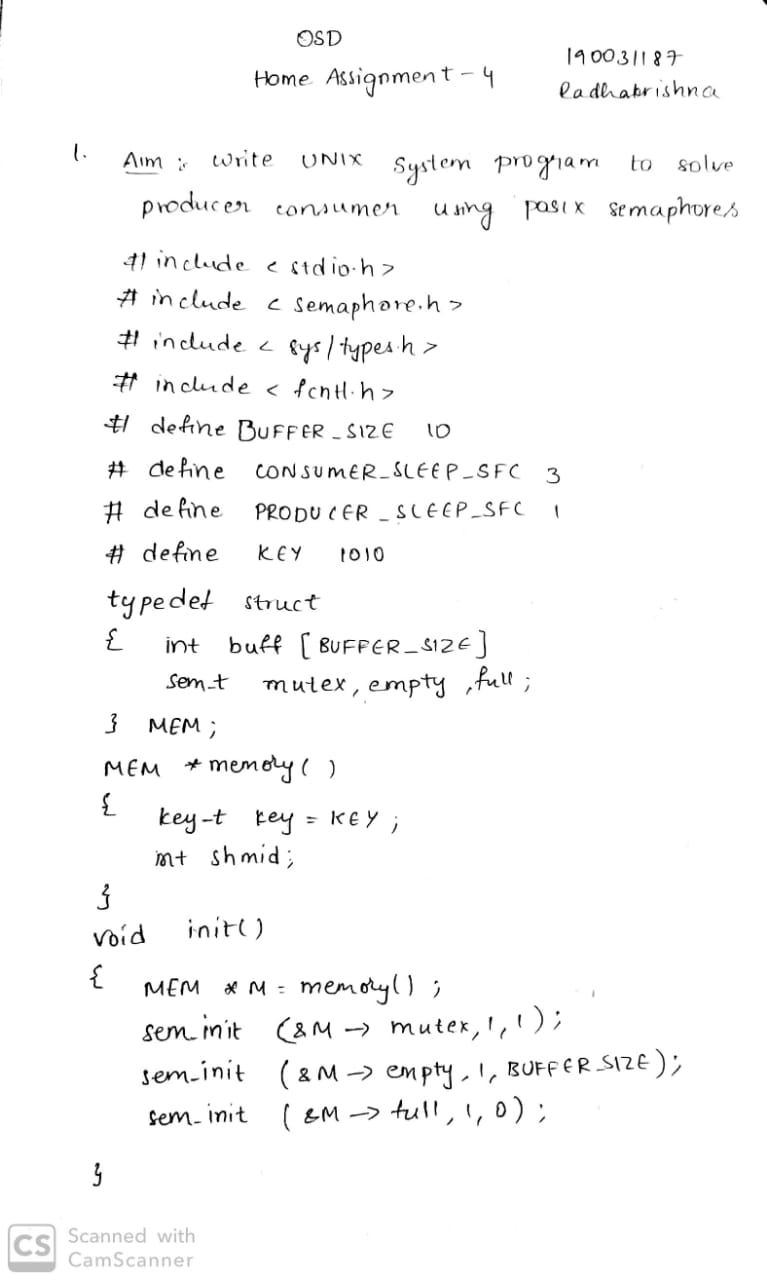 OSD
Home Assignment - 4
190031187
Radhakrishna
1. Aim : write UNIX System program to solve
producer consumer using posix semaphores
# include < stdio.h >
# include < semaphore.h >
# include < sys/types.h >
# include < fcntl.h >
# define BUFFER_SIZE 10
# define CONSUMER_SLEEP_SEC 3
# define PRODUCER_SLEEP_SEC 1
# define KEY 1010
typedef struct
{ int buff [BUFFER_SIZE]
sem_t mutex, empty, full ;
} MEM ;
MEM * memory ( )
{ key-t key = KEY ;
int shmid ;
}
void init( )
{ MEM * M = memory( ) ;
sem_init (&M -> mutex, 1, 1) ;
sem_init (&M -> empty, 1, BUFFER_SIZE) ;
sem_init (&M -> full, 1, 0) ;
}
CS Scanned with
CamScanner